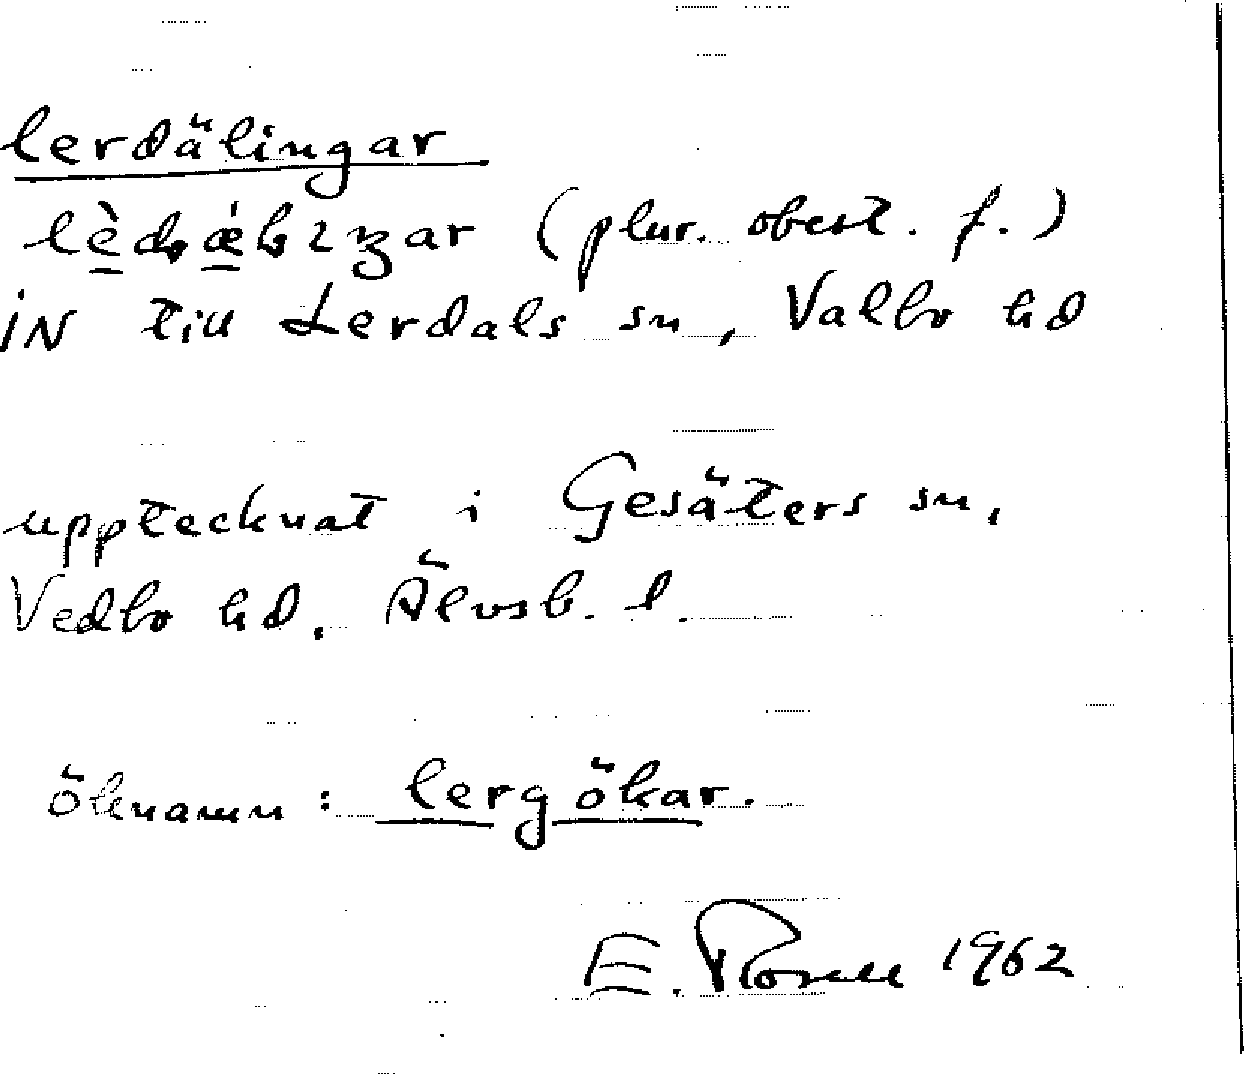 lerdälingar
(plur. obest. f.)
iN till Lerdals sn, Valbo hd
upptecknat i Gesäters sn,
Vedbo hd. Älvsb. l.
öknamn: lergökar.
E. Rosell 1962